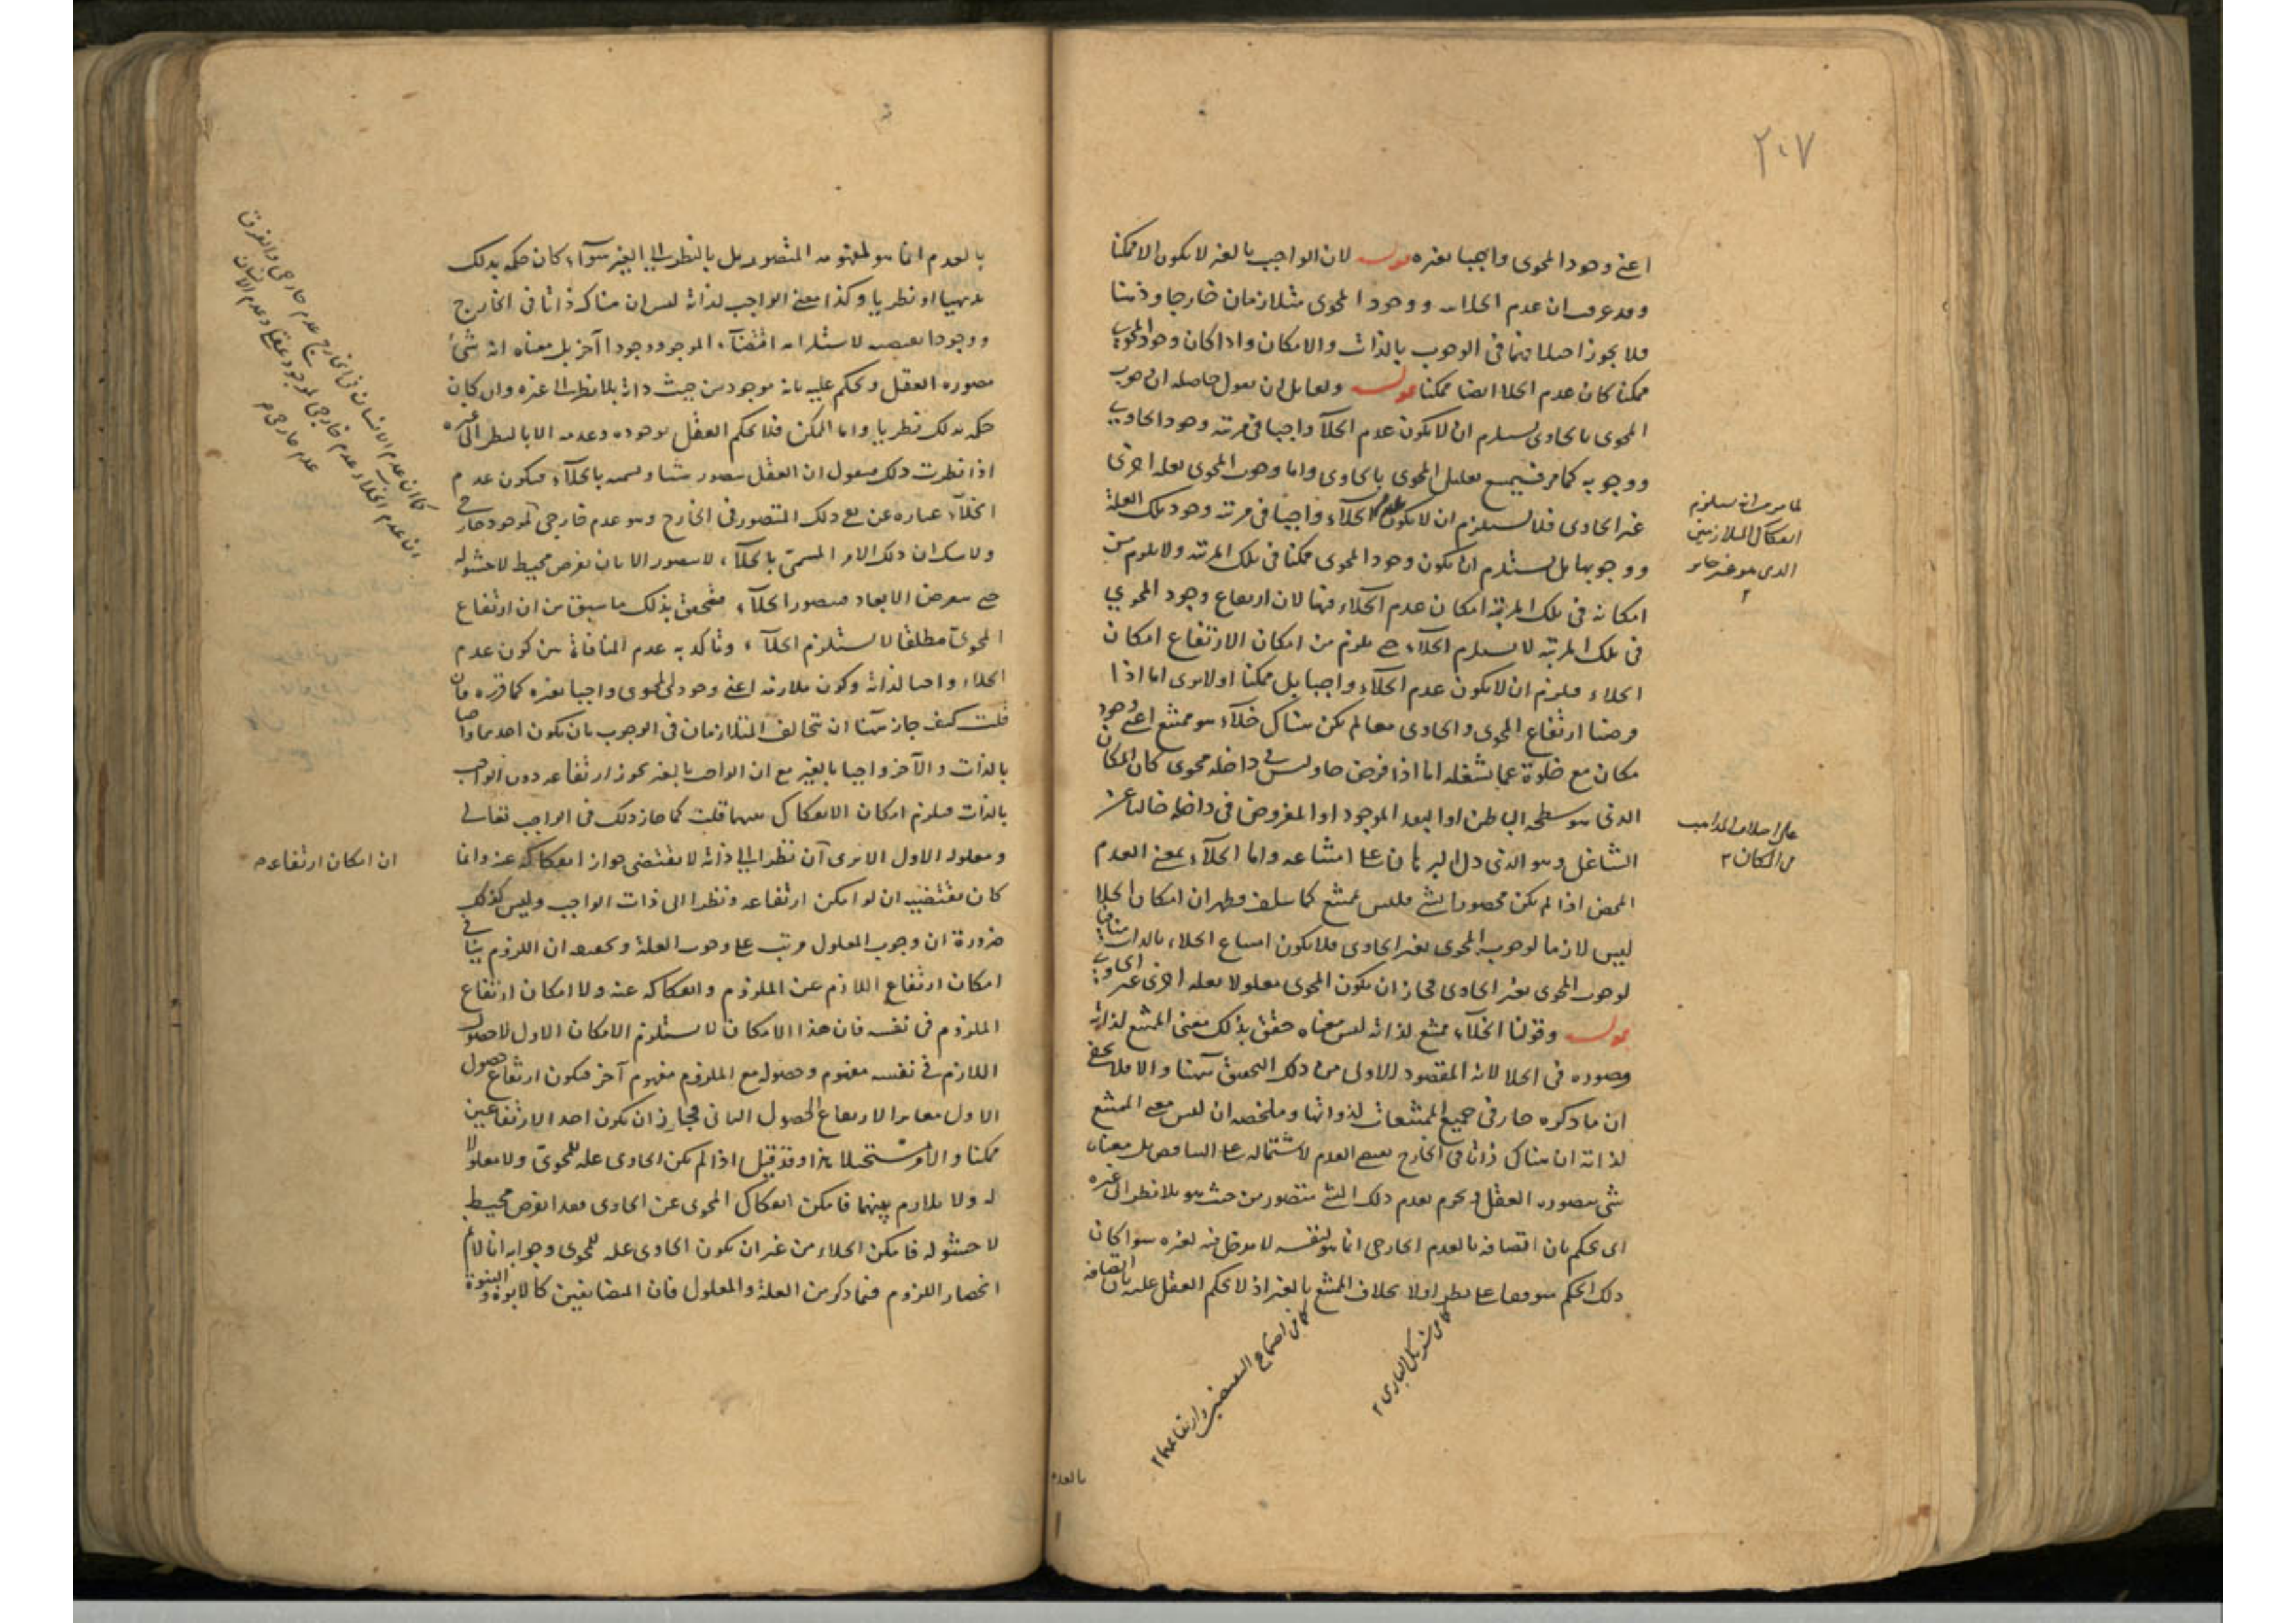 ٢٠٧
اعنى وجود المحوى واجبا بغيره قوله لان الواجب بالغير لا يكون الا ممكنا
وقد عرفت ان عدم الخلاء ووجود المحوى متلازمان خارجا وذهنا
فلا يجوز اختلافهما فى الوجوب بالذات والامكان واذا كان وجود المحوى
ممكنا كان عدم الخلا ايضا ممكنا قوله ولقايل ان يقول حاصله ان وجوب
المحوى بالحاوى يستلزم ان لا يكون عدم الخلآ واجبا فى مرتبة وجود الحاوى
ووجوبه كما مر فيمتنع تعليل المحوى بالحاوى واما وجوب المحوى بعلة اخرى
غير الحاوى فلا يستلزم ان لا يكون عدم الخلآء واجبا فى مرتبة وجود تلك العلة
ووجوبها بل يستلزم ان يكون وجود المحوى ممكنا فى تلك المرتبة ولا يلزم من
امكانه فى تلك المرتبة امكان عدم الخلاء فيها لان ارتفاع وجود المحوى
فى تلك المرتبة لا يستلزم الخلآء حتى يلزم من امكان الارتفاع امكان
الخلاء فيلزم ان لا يكون عدم الخلآء واجبا بل ممكنا اولا يرى اما اذا
فرضنا ارتفاع المحوى والحاوى معا لم يكن هناك خلآء هو ممتنع اعنى وجود
مكان مع خلوه عما يشغله اما اذا فرض حاو ليس فى داخله محوى كان المكان
الذى هو سطحه الباطن او البعد الموجود او المفروض فى داخله خاليا عن
الشاغل وهو الذى دل البرهان على امتناعه واما الخلآء بمعنى العدم
المحض اذا لم يكن محصورا بشئ فليس بممتنع كما سلف فظهر ان امكان الخلا
ليس لازما لوجوب المحوى بغير الحاوى فلا يكون امتناع الخلاء بالذات منافيا
لوجوب المحوى بغير الحاوى فجاز ان يكون المحوى معلولا لعلة اخرى غير الحاوى
قوله وقولنا الخلآء ممتنع لذاته ليس معناه حقق بذلك معنى الممتنع لذاته
وصوره فى الخلا لانه المقصود الاولى من ذلك التحقيق ههنا والا فلا يخفى
ان ما ذكره جار فى جميع الممتنعات لذواتها وملخصه ان ليس معنى الممتنع
لذاته ان هناك ذاتا فى الخارج يقتضى العدم لاشتماله على التناقض بل معناه
شئ يتصوره العقل ويجزم بعدم ذلك الشئ متصور من حيث هو بلا نظر الى غيره
اى يحكم بان اتصافه بالعدم الخارجى انما هو لنفسه لا مدخل فيه لغيره سوا كان
ذلك الحكم موقوفا على نظر اولا بخلاف الممتنع بالغير اذ لا يحكم العقل عليه باتصافه
لما مر من انه يستلزم
انفكاك المتلازمين
الذى هو غير جايز
على اختلاف المذاهب
فى المكان ٢
كما فى شريك البارى ٢
كما فى اجتماع النقيضين وارتفاعهما ٢
بالعدم
بالعدم انما هو لمفهومه المتصور بل بالنظر الى الغير سوآء كان حكمه بذلك
بديهيا او نظريا وكذا معنى الواجب لذاته ليس ان هناك ذاتا فى الخارج
ووجودا يقتضيه لاستلزامه اقتضآء الموجود وجودا آخر بل معناه انه شئ
يتصوره العقل ويحكم عليه بانه موجود من حيث ذاته بلا نظر الى غيره وان كان
حكمه بذلك نظريا واما الممكن فلا يحكم العقل بوجوده وعدمه الا بالنظر الى غيره
اذا نظرت ذلك فنقول ان العقل يتصور شيئا ويسميه بالخلآء فيكون عدم
الخلآء عبارة عن نفى ذلك المتصور فى الخارج وهو عدم خارجى لموجود خارجى
ولا شك ان ذلك الامر المسمى بالخلآء لا يتصور الا بان يفرض محيط لا حشو له
حتى يفرض الابعاد فيتصور الخلآء فتحقق بذلك ما سبق من ان ارتفاع
المحوى مطلقا لا يستلزم الخلآء وتأكد به عدم المنافاة بين كون عدم
الخلاء واجبا لذاته وكون ملازمه اعنى وجود المحوى واجبا بغيره كما قرره فان
قلت كيف جاز ههنا ان يتخالف المتلازمان فى الوجوب بان يكون احدهما واجبا
بالذات والآخر واجبا بالغير مع ان الواجب بالغير يجوز ارتفاعه دون الواجب
بالذات فيلزم امكان الانفكاك بينهما قلت كما جاز ذلك فى الواجب تعالى
ومعلوله الاول الا ترى ان نظرا الى ذاته لا يقتضى جواز انفكاكه عنه وانما
كان مقتضيه ان لو امكن ارتفاعه ونظرا الى ذات الواجب وليس كذلك
ضرورة ان وجوب المعلول مرتب على وجوب العلة وتحقيقه ان اللزوم ينافى
امكان ارتفاع اللازم عن الملزوم وانفكاكه عنه ولا امكان ارتفاع
الملزوم فى نفسه فان هذا الامكان لا يستلزم الامكان الاول لان حصول
اللازم فى نفسه مفهوم وحصوله مع الملزوم مفهوم آخر فيكون ارتفاع حصول
الاول مغايرا لارتفاع الحصول الثانى فجاز ان يكون احد الارتفاعين
ممكنا والآخر مستحيلا هذا وقد قيل اذا لم يكن الحاوى علة للمحوى ولا معلولا
له ولا تلازم بينهما فامكن انفكاك المحوى عن الحاوى فقد يفرض محيط
لا حشو له فامكن الخلاء من غير ان يكون الحاوى علة للمحوى وجوابه انا لا نم
انحصار اللزوم فيما ذكر من العلة والمعلول فان المتضايفين كالابوة والبنوة
كما ان عدم الانسان فى الخارج عدم خارجى والفرق
ان عدم الخلاء عدم خارجى لموجود عقلى وعدم الانسان
عدم خارجى
ان امكان ارتفاعه